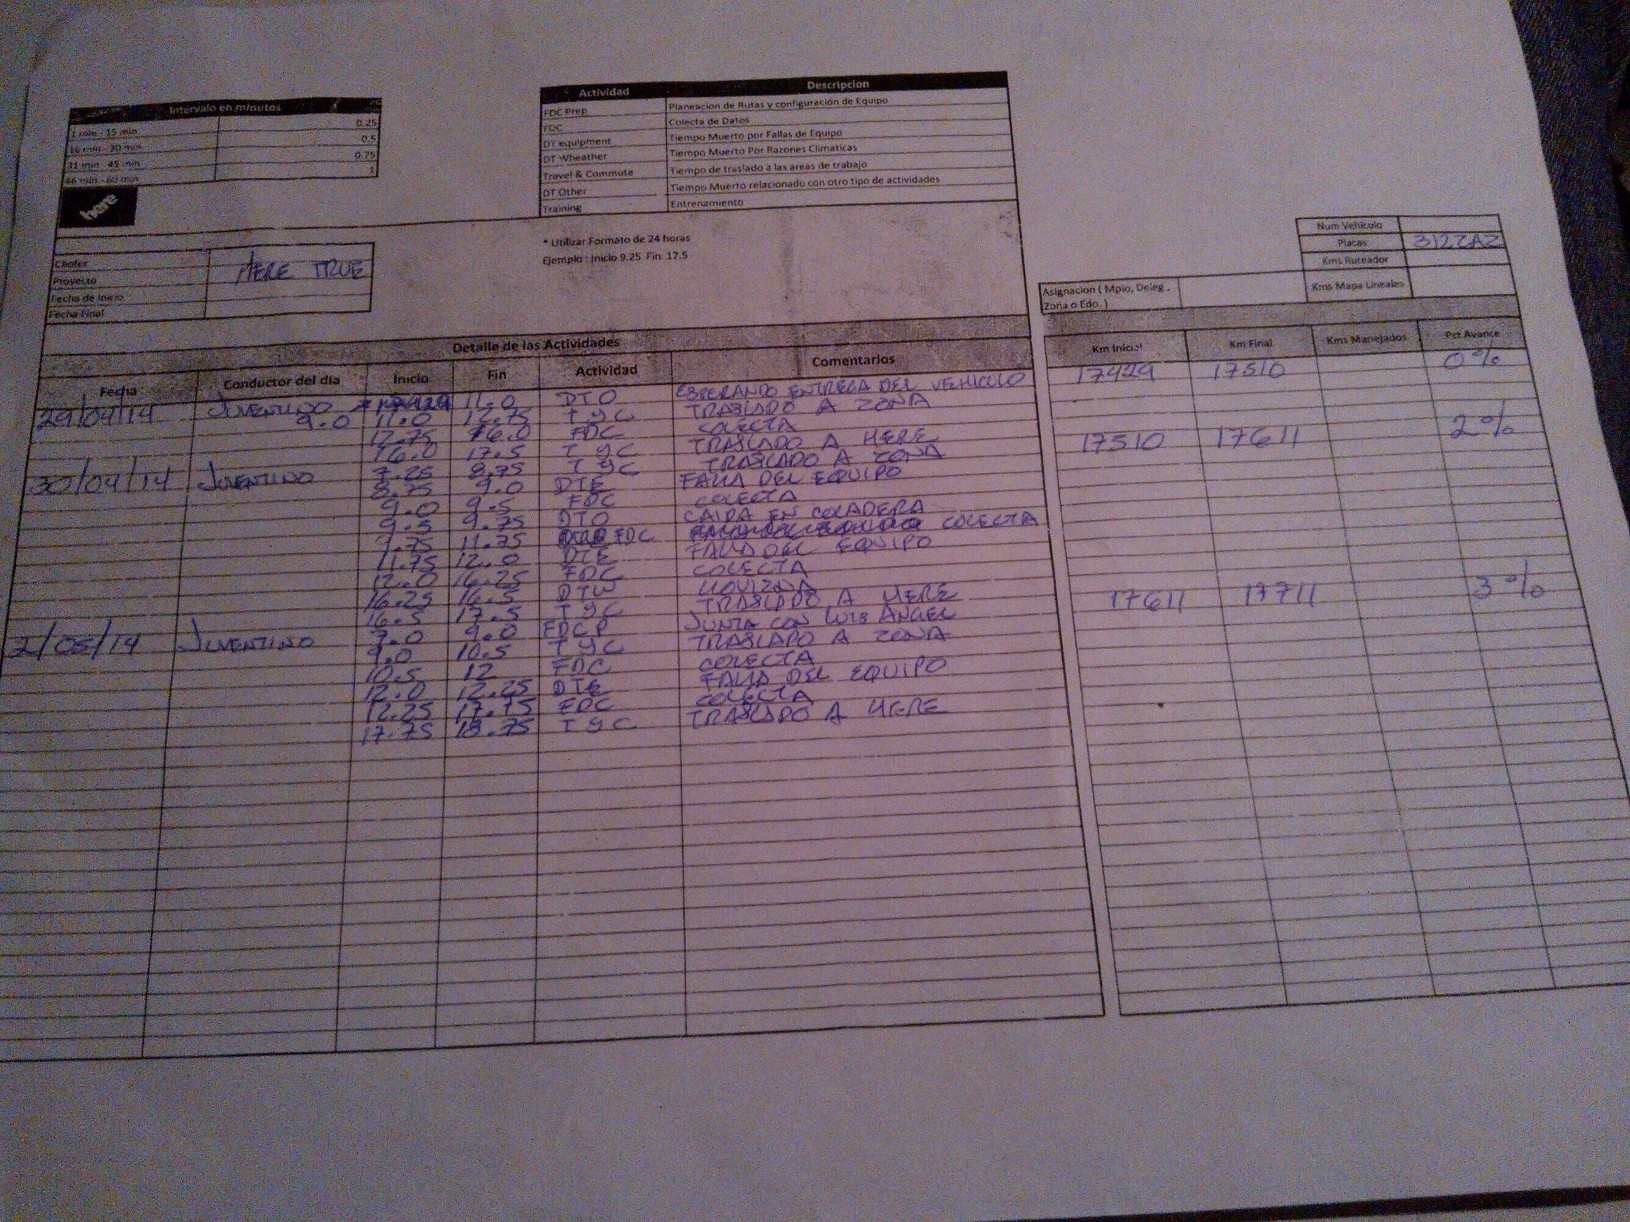 Intervalo en minutos
1 min - 15 min 0.25
16 min - 30 min 0.5
31 min - 45 min 0.75
46 min - 60 min 1
here
Actividad Descripcion
FDC Prep Planeacion de Rutas y configuración de Equipo
FDC Colecta de Datos
DT equipment Tiempo Muerto por Fallas de Equipo
DT Wheather Tiempo Muerto Por Razones Climaticas
Travel & Commute Tiempo de traslado a las areas de trabajo
DT Other Tiempo Muerto relacionado con otro tipo de actividades
Training Entrenamiento
* Utilizar Formato de 24 horas
Ejemplo : Inicio 9.25 Fin 17.5
Chofer
Proyecto HERE TRUE
Fecha de Inicio
Fecha Final
Num Vehiculo
Placas 312ZAZ
Kms Ruteador
Kms Mapa Lineales
Asignacion ( Mpio, Deleg ,
Zona o Edo. )
Detalle de las Actividades
Fecha Conductor del dia Inicio Fin Actividad Comentarios Km Inicial Km Final Kms Manejados Pct Avance
29/04/14 JUVENTINO 9.0 11.0 DTO ESPERANDO ENTREGA DEL VEHICULO 17429 17510 0%
11.0 12.75 TYC TRASLADO A ZONA
12.75 16.0 FDC COLECTA
16.0 17.5 TYC TRASLADO A HERE
30/04/14 JUVENTINO 7.25 8.75 TYC TRASLADO A ZONA 17510 17611 2%
8.75 9.0 DTE FALLA DEL EQUIPO
9.0 9.5 FDC COLECTA
9.5 9.75 DTO CAIDA EN COLADERA
9.75 11.75 FDC COLECTA
11.75 12.0 DTE FALLA DEL EQUIPO
12.0 16.25 FDC COLECTA
16.25 16.5 DTW LLOVIZNA
16.5 17.5 TYC TRASLADO A HERE
2/05/14 JUVENTINO 7.0 9.0 FDC P JUNTA CON LUIS ANGEL 17611 17711 3%
9.0 10.5 TYC TRASLADO A ZONA
10.5 12 FDC COLECTA
12.0 12.25 DTE FALLA DEL EQUIPO
12.25 17.75 FDC COLECTA
17.75 18.75 TYC TRASLADO A HERE